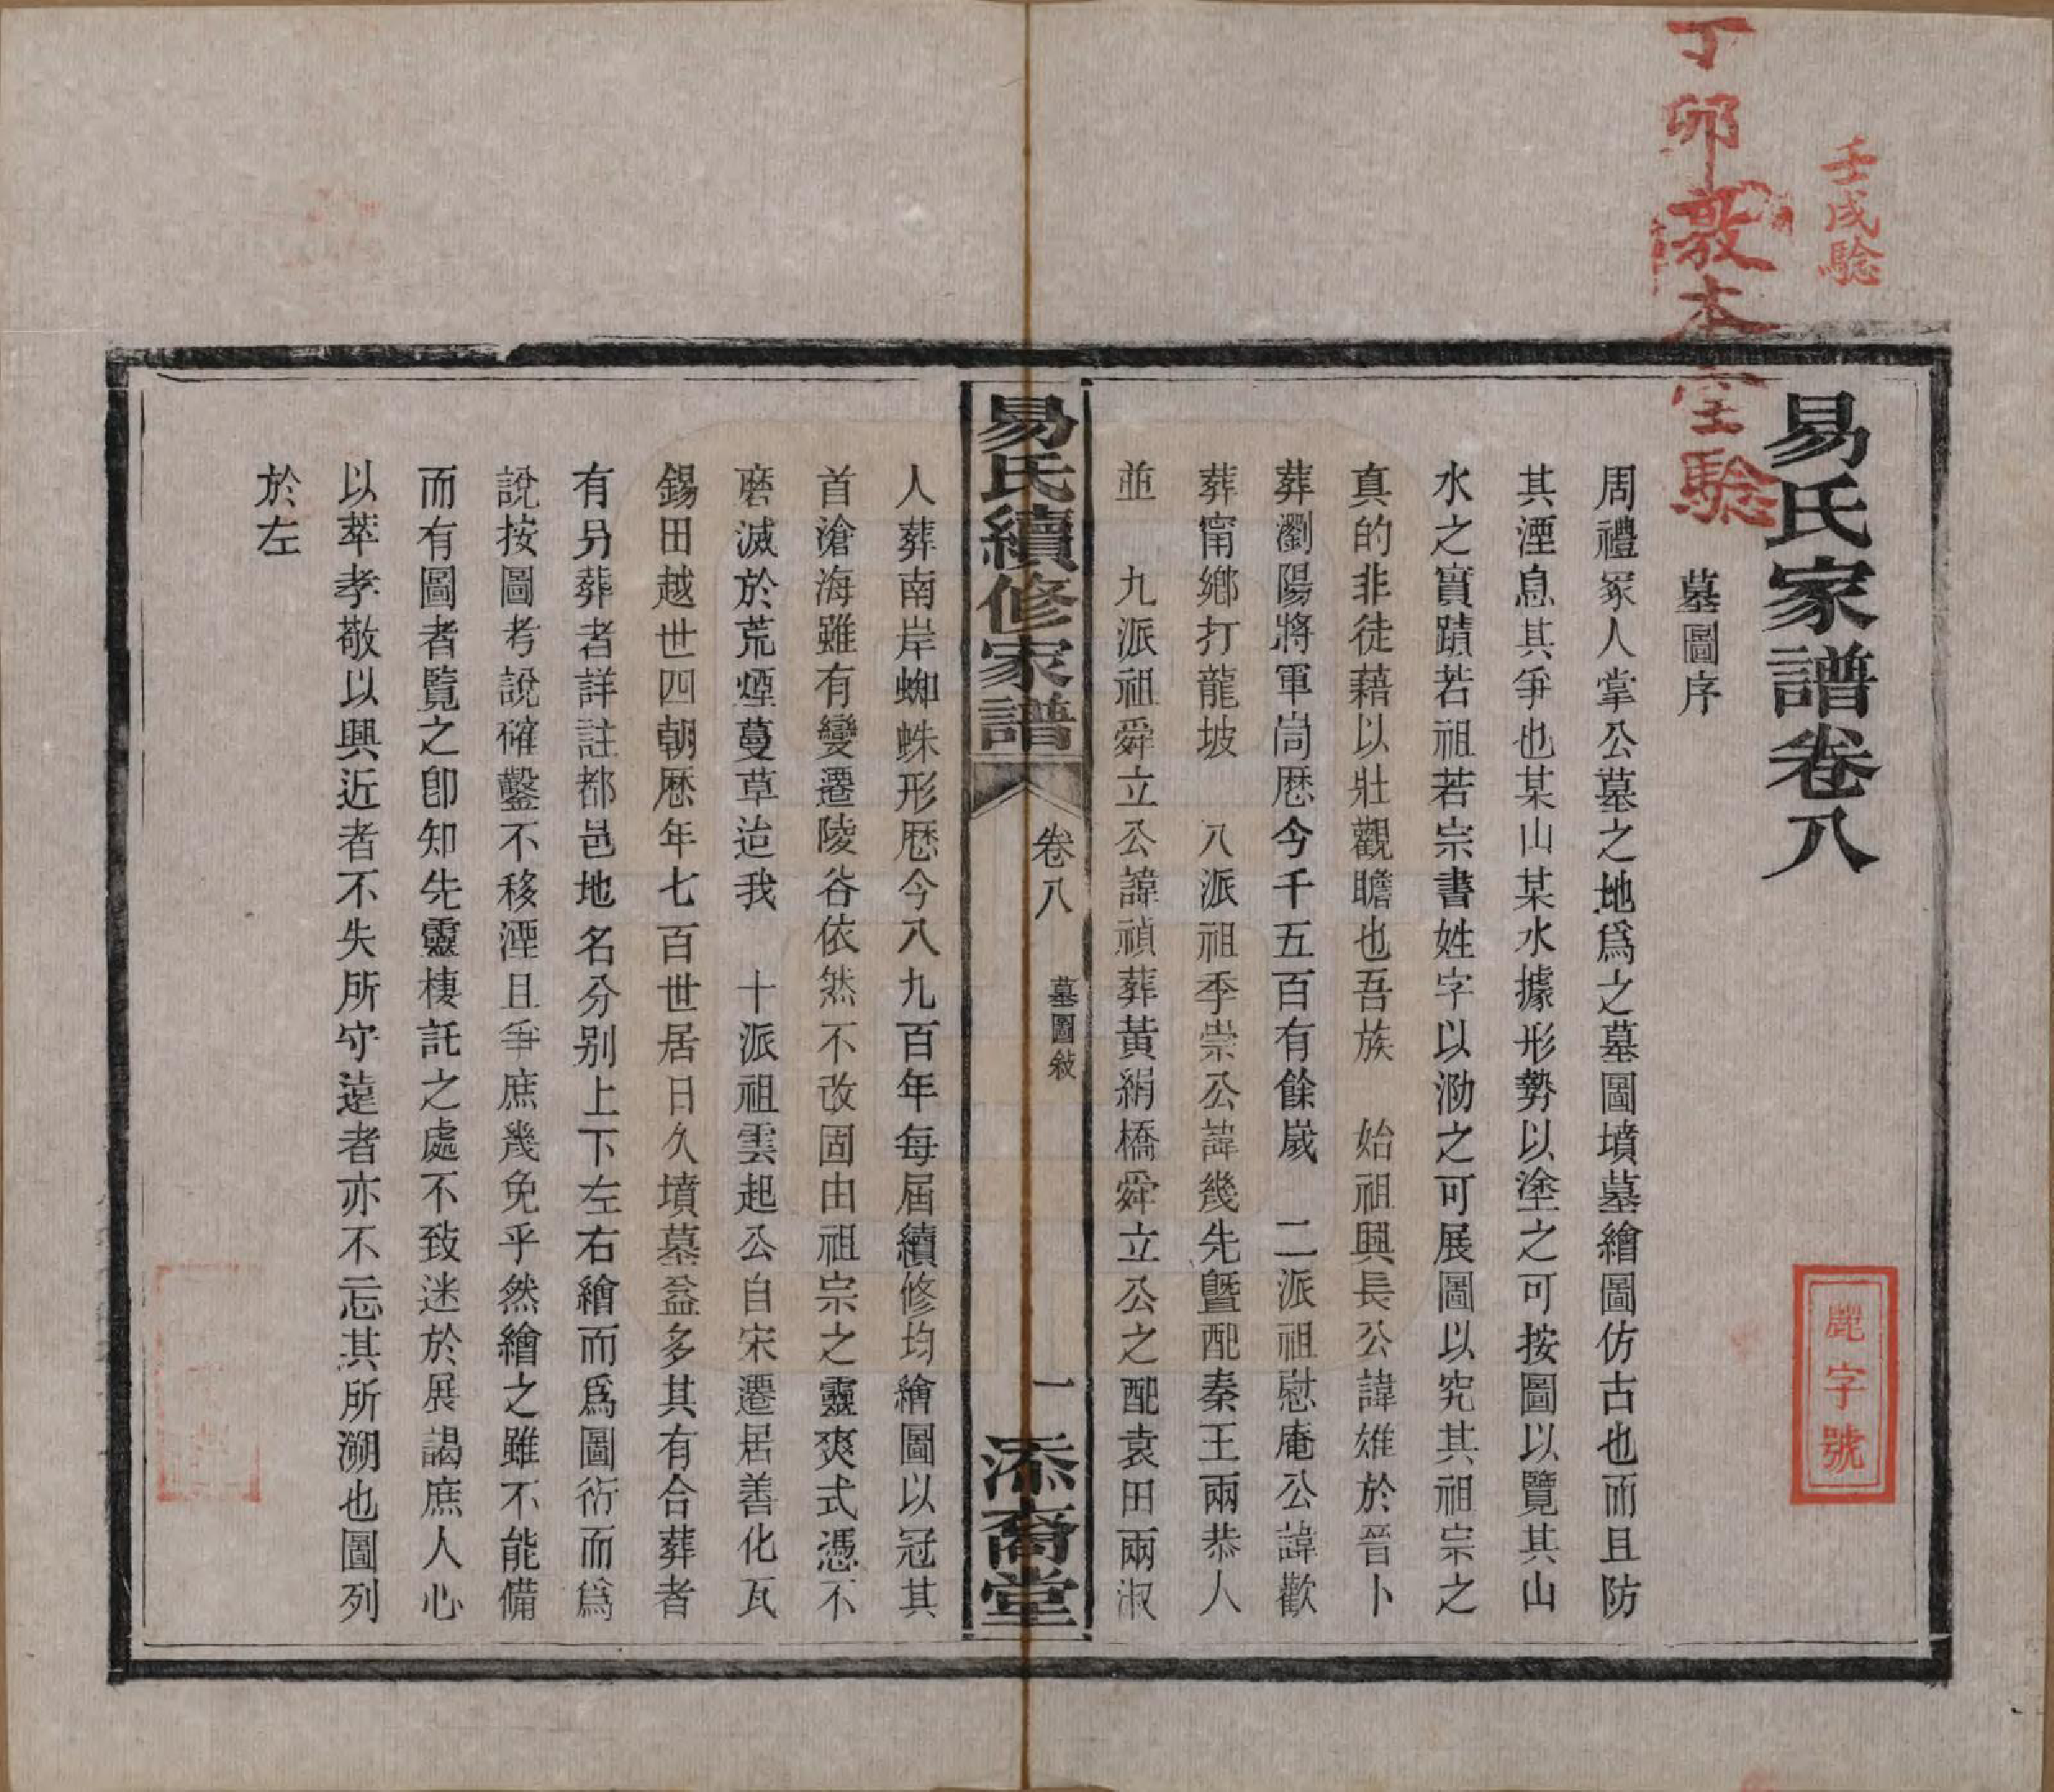 壬戌驗
丁卯敦本堂驗
易氏家譜卷八
麗字號
墓圖序
周禮冢人掌公墓之地爲之墓圖墳墓繪圖仿古也而且防
其湮息其爭也某山某水據形勢以塗之可按圖以覽其山
水之實蹟若祖若宗書姓字以泐之可展圖以究其祖宗之
真的非徒藉以壯觀瞻也吾族　始祖興長公諱雄於晉卜
葬瀏陽將軍峝歷今千五百有餘嵗　二派祖慰庵公諱歡
葬甯鄉打龍坡　八派祖季崇公諱幾先曁配秦王兩恭人
並　九派祖舜立公諱禎葬黃絹橋舜立公之配袁田兩淑
易氏續修家譜
卷八
墓圖敍
一
添裔堂
人葬南岸蜘蛛形歷今八九百年每屆續修均繪圖以冠其
首滄海雖有變遷陵谷依然不改固由祖宗之靈爽式憑不
磨滅於荒煙蔓草迨我　十派祖雲起公自宋遷居善化瓦
錫田越世四朝歷年七百世居日久墳墓益多其有合葬者
有另葬者詳註都邑地名分別上下左右繪而爲圖衍而爲
說按圖考說確鑿不移湮且爭庶幾免乎然繪之雖不能備
而有圖者覽之卽知先靈棲託之處不致迷於展謁庶人心
以萃孝敬以興近者不失所守遠者亦不忘其所溯也圖列
於左